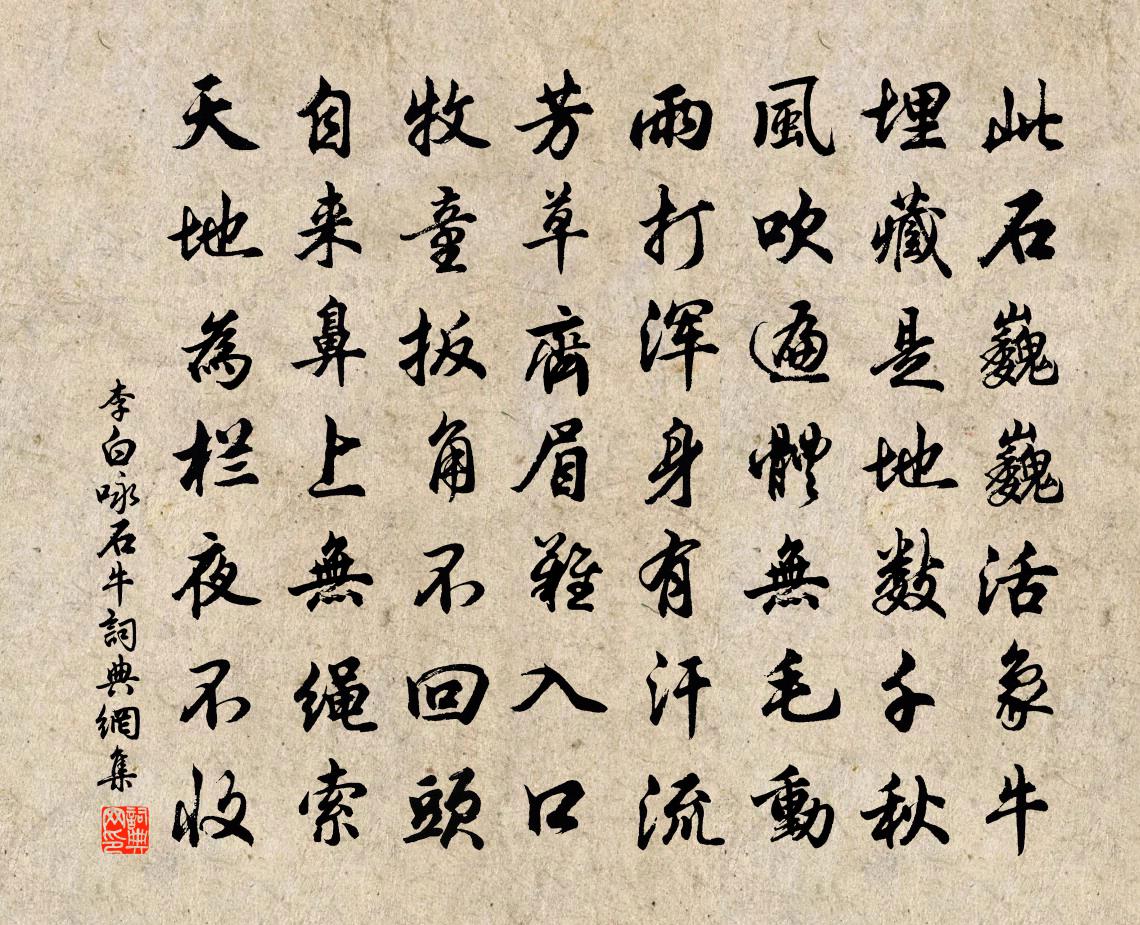 此石巍巍活象牛
埋藏是地数千秋
風吹遍體無毛動
雨打浑身有汗流
芳草齊眉難入口
牧童扳角不回頭
自来鼻上無繩索
天地為栏夜不收
李白咏石牛詞典網集
詞典网印